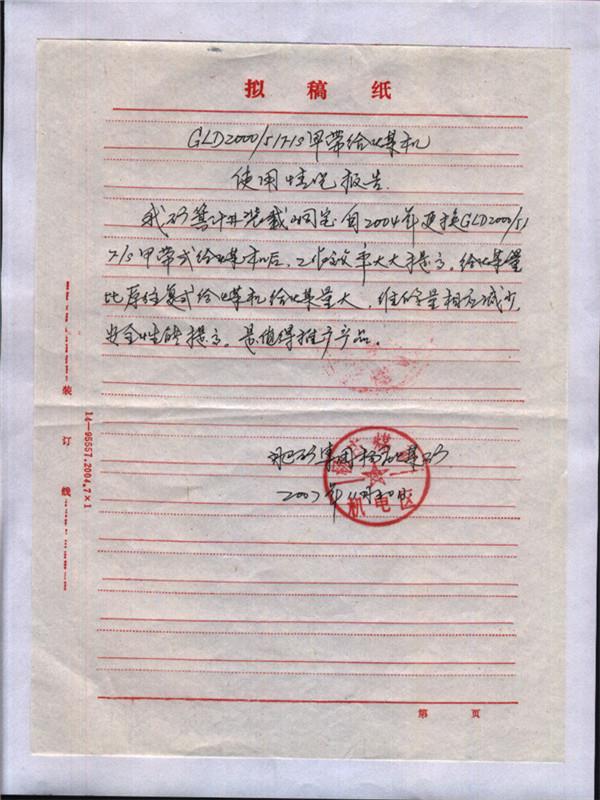 拟稿纸
GLD2000/5/7/S甲带给煤机
使用情况报告
我矿箕斗井装载硐室自2004年更换GLD2000/5/
7/S甲带式给煤机后，工作效率大大提高，给煤量
比原往复式给煤机给煤量大，维修量相应减少，
安全性能提高。是值得推广产品。
集团 煤矿
2007年11月30日
机电区
装订线
14—95557.2004.7×1
第 页